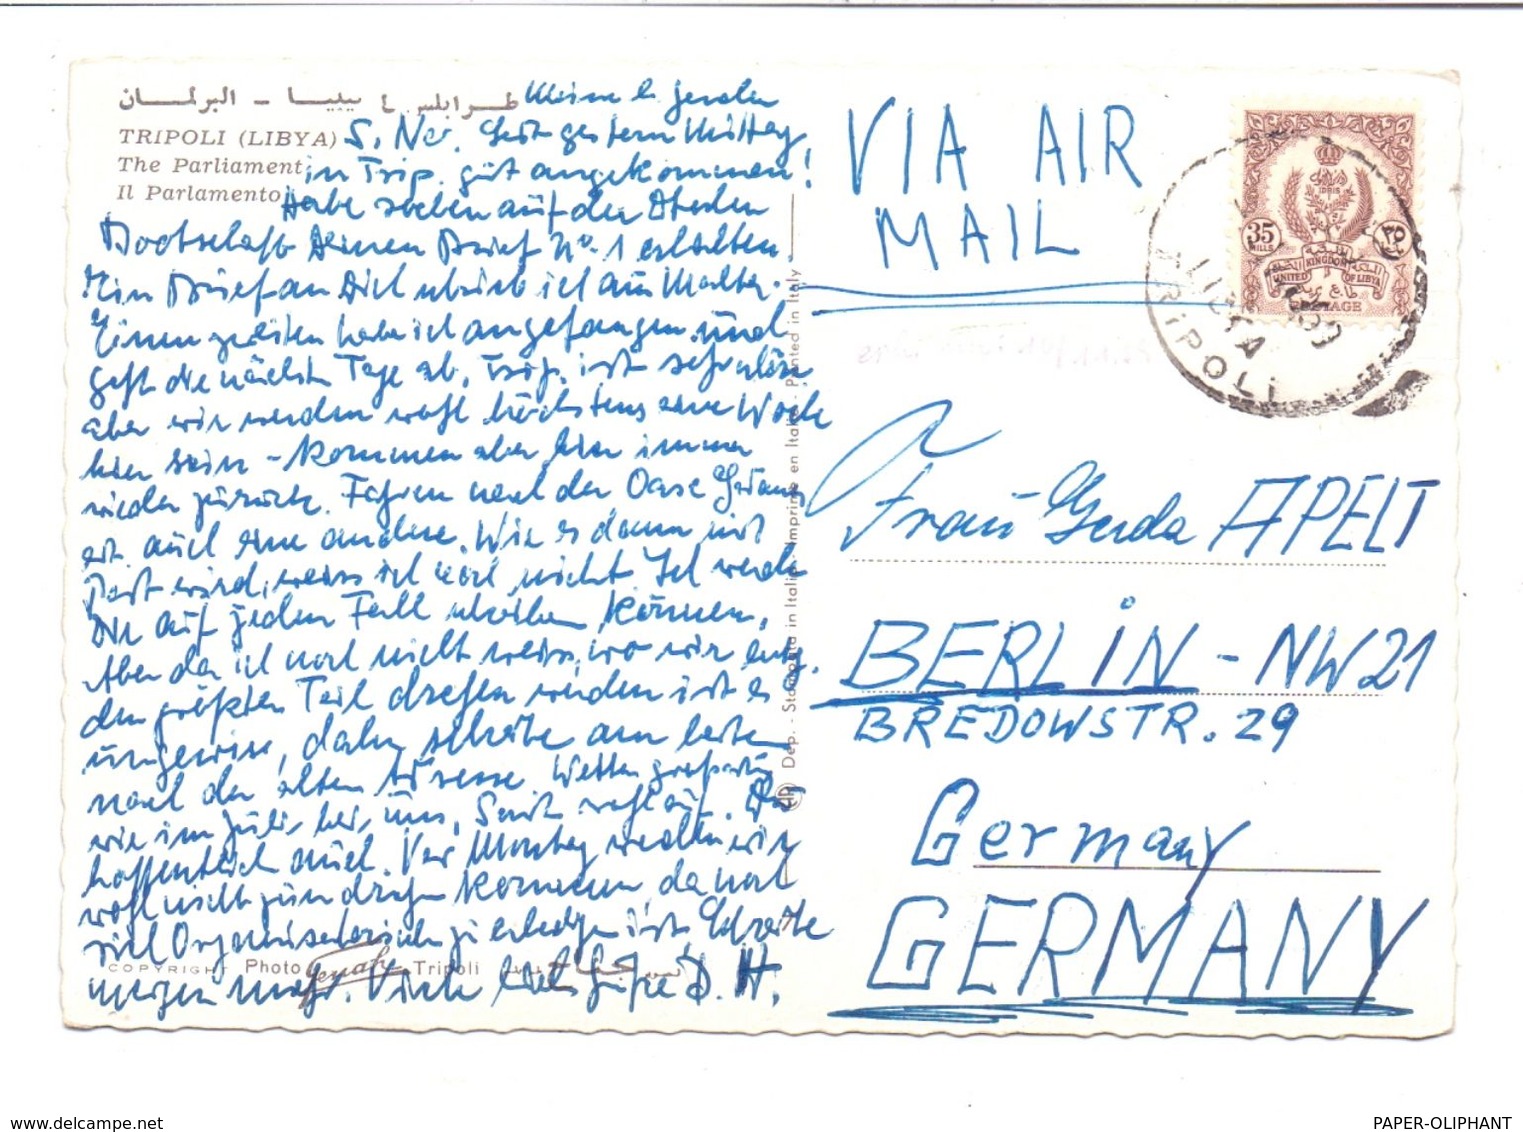 طرابلس ٤ ليبيا - البرلمان
TRIPOLI (LIBYA)
The Parliament
Il Parlamento
Meine l. Gerda
5. Nov. Seit gestern Mittag
in Trip. gut angekommen!
Habe soeben auf der Dteschen
Bootschaft Deinen Brief No. 1 erhalten.
Ein Brief an Dich schrieb ich aus Malta.
Einen zweiten habe ich angefangen und
geht die nächsten Tage ab. Trip. ist sehr schön
aber wir werden wohl höchstens eine Woche
hier sein - kommen aber hier immer
wieder zurück. Fahren nach der Oase
auch eine andere. Wie es dann mit
Post wird, weiss ich noch nicht. Ich werde
Dir auf jeden Fall schreiben können.
Aber da ich noch nicht weiss, wo wir
den größten Teil drehen werden ist es
ungewiss, daher schreibe am besten
nach der alten Adresse. Wetter großartig
wie im Juli bei uns. Seid wohlauf.
hoffentlich auch. Vor Montag werden wir
wohl nicht zum drehen kommen, da noch
viel Organisatorisches zu erledigen ist. Schreibe
morgen mehr. Viele liebe Grüße D. H.
COPYRIGHT Photo Tripoli
Dep. - Stampata in Italia - Imprimé en Italie - Printed in Italy
VIA AIR
MAIL
35
MILLS
IDRIS
UNITED KINGDOM OF LIBYA
POSTAGE
٣٥
TRIPOLI
LIBYA
Frau Gerda APELT
BERLIN - NW21
BREDOWSTR. 29
Germany
GERMANY
www.delcampe.net
PAPER-OLIPHANT